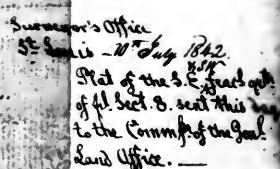 Surveyor's Office
St Louis - 10th July 1842.
Plat of the S.E. fracl qr.
of fl. Sect. 8. sent this
to the Commr. of the Genl
Land Office.